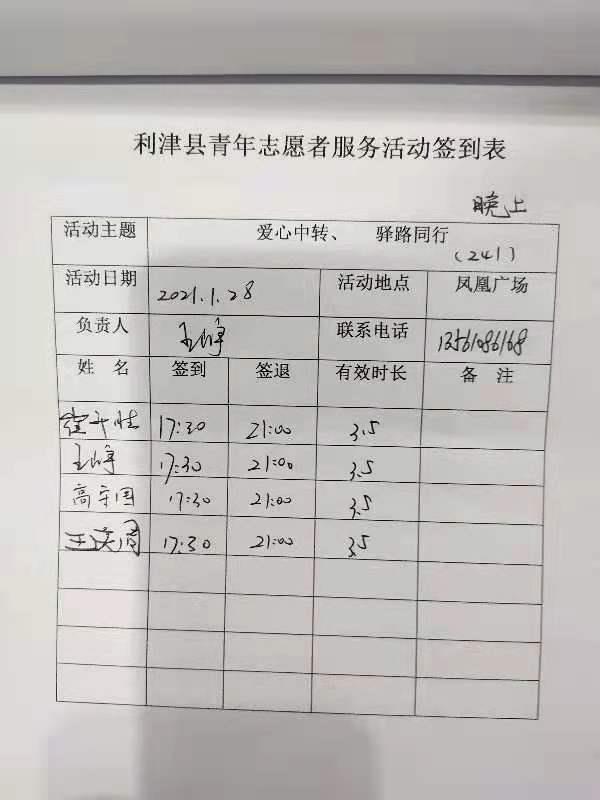 利津县青年志愿者服务活动签到表
晚上
活动主题 爱心中转、 驿路同行
(241)
活动日期 2021.1.28 活动地点 凤凰广场
负责人 王峥 联系电话 13561086168
姓 名 签到 签退 有效时长 备 注
17:30 21:00 3.5
王峥 17:30 21:00 3.5
高守国 17:30 21:00 3.5
17:30 21:00 3.5